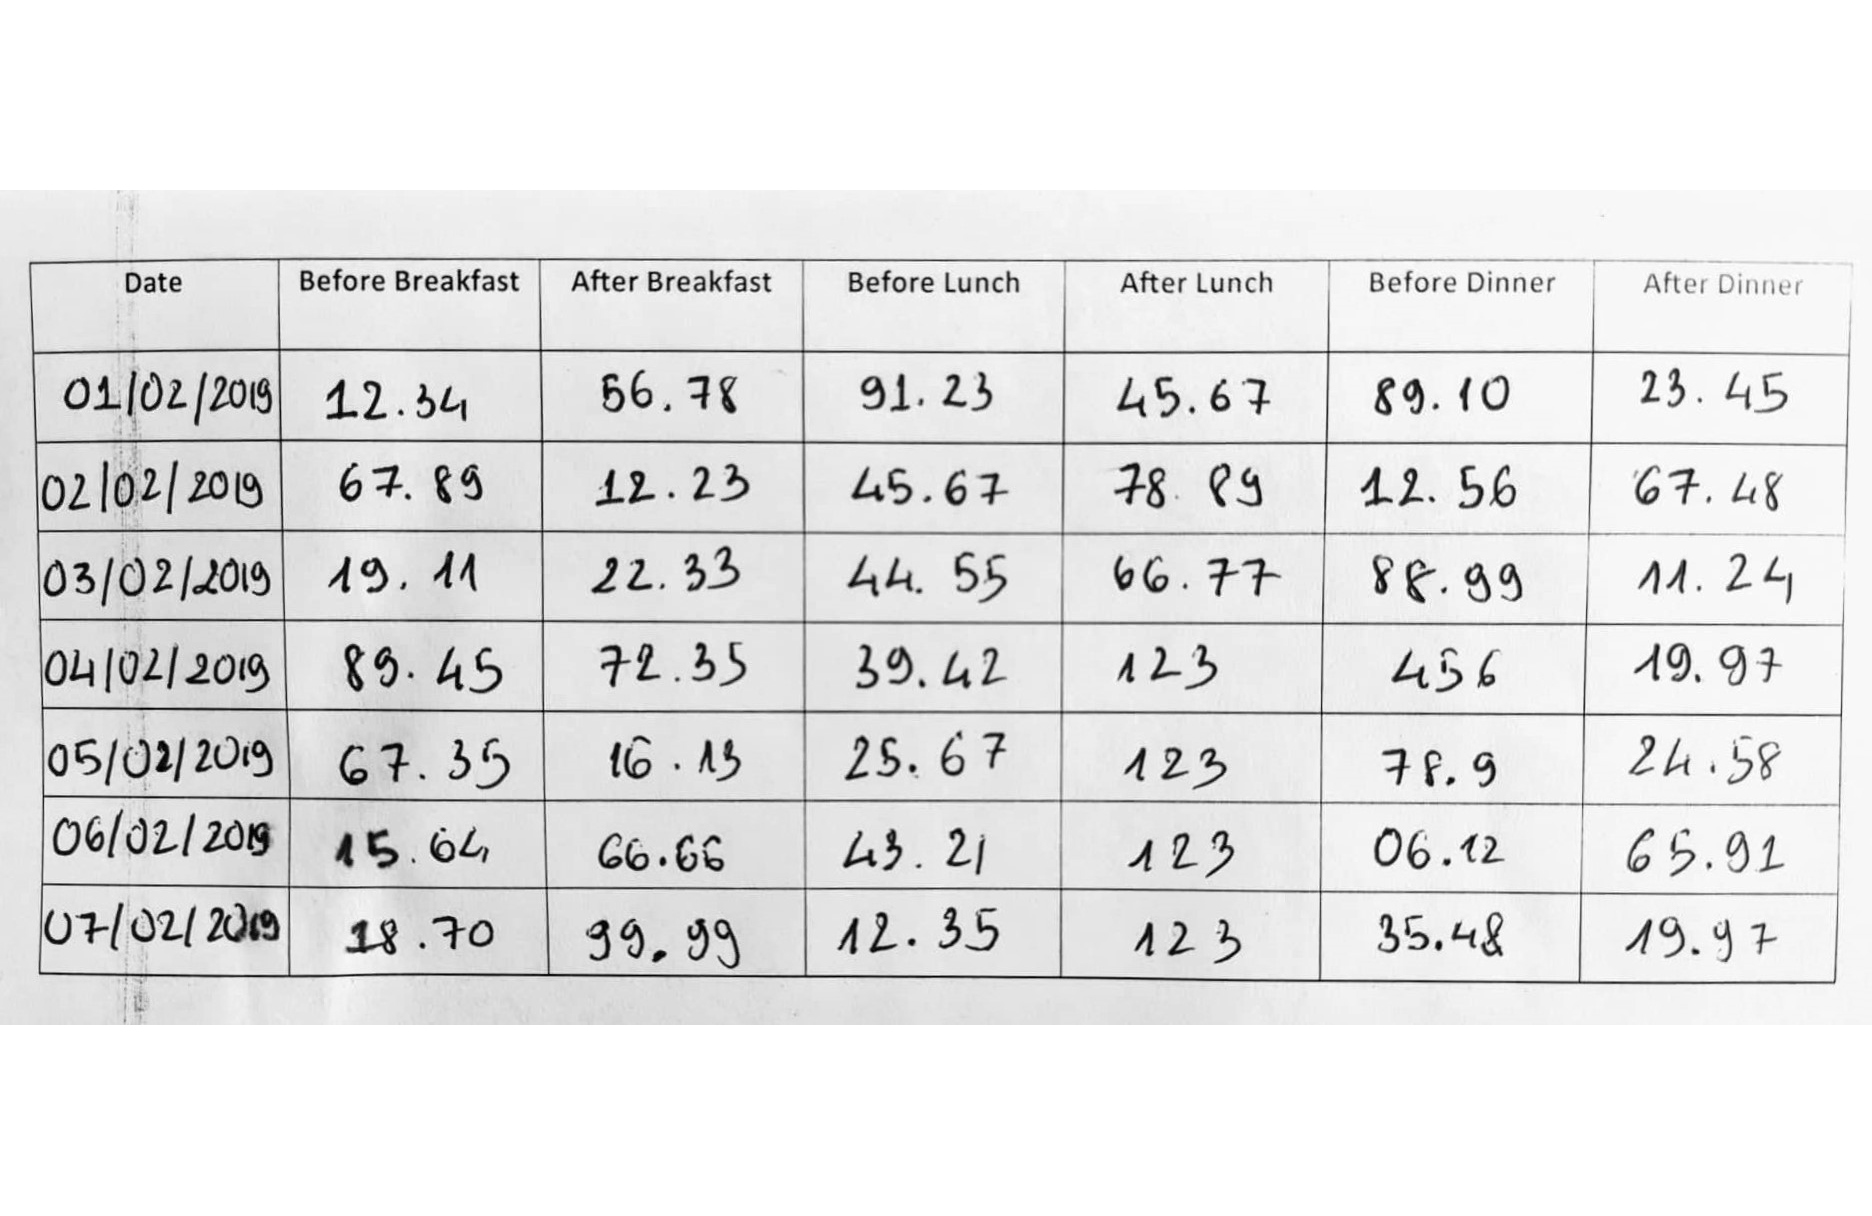 Date Before Breakfast After Breakfast Before Lunch After Lunch Before Dinner After Dinner
01/02/2019 12.34 56.78 91.23 45.67 89.10 23.45
02/02/2019 67.89 12.23 45.67 78.89 12.56 67.48
03/02/2019 19.11 22.33 44.55 66.77 88.99 11.24
04/02/2019 89.45 72.35 39.42 123 456 19.97
05/02/2019 67.35 16.13 25.67 123 78.9 24.58
06/02/2019 15.64 66.66 43.21 123 06.12 65.91
07/02/2019 18.70 99.99 12.35 123 35.48 19.97